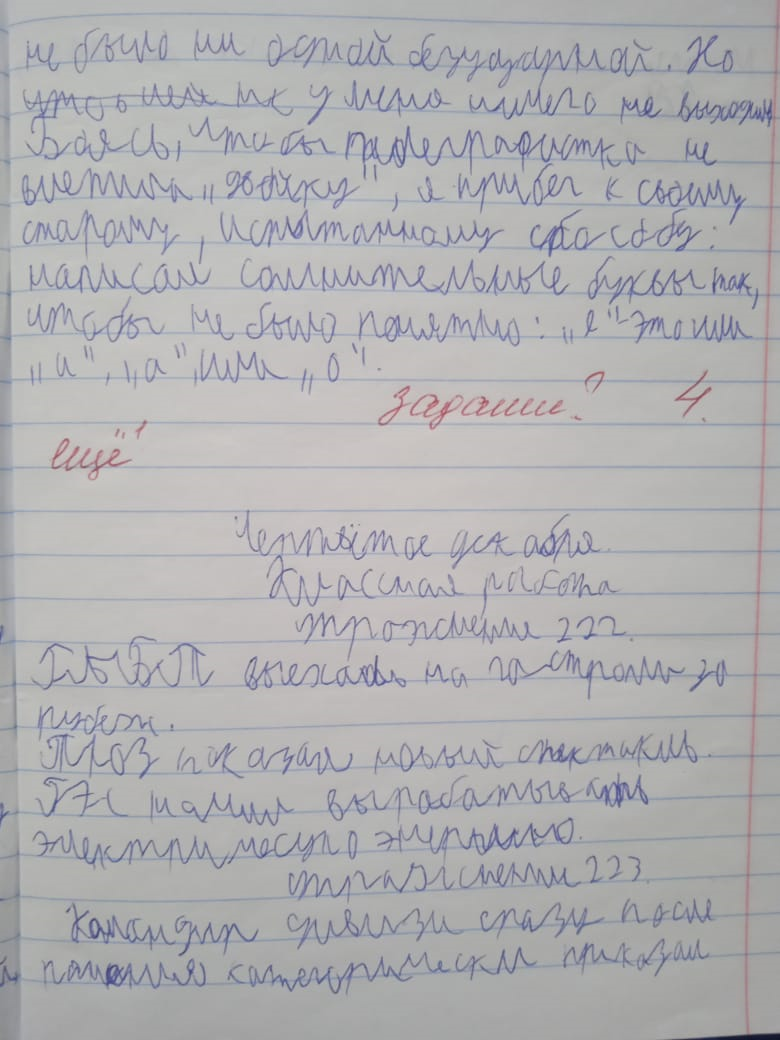 не было ни одной безударной. Но
у меня ничего не выходил
Боясь, чтобы телеграфистка не
влетила „двойку", я прибег к своему
старому, испытанному способу:
написал сомнительные буквы так,
чтобы не было понятно: „е"-это или
„и", „а", или „о".
задание? 4.
ещё"
декабря.
Классная работа
Упражнение 222.
выехаль на гастроли за
рубеж.
ТЮЗ показал новый спектакль.
ГЭС начал вырабатывать
электрическую энергию.
Упражнение 223.
Командир дивизи сразу после
категорически приказал